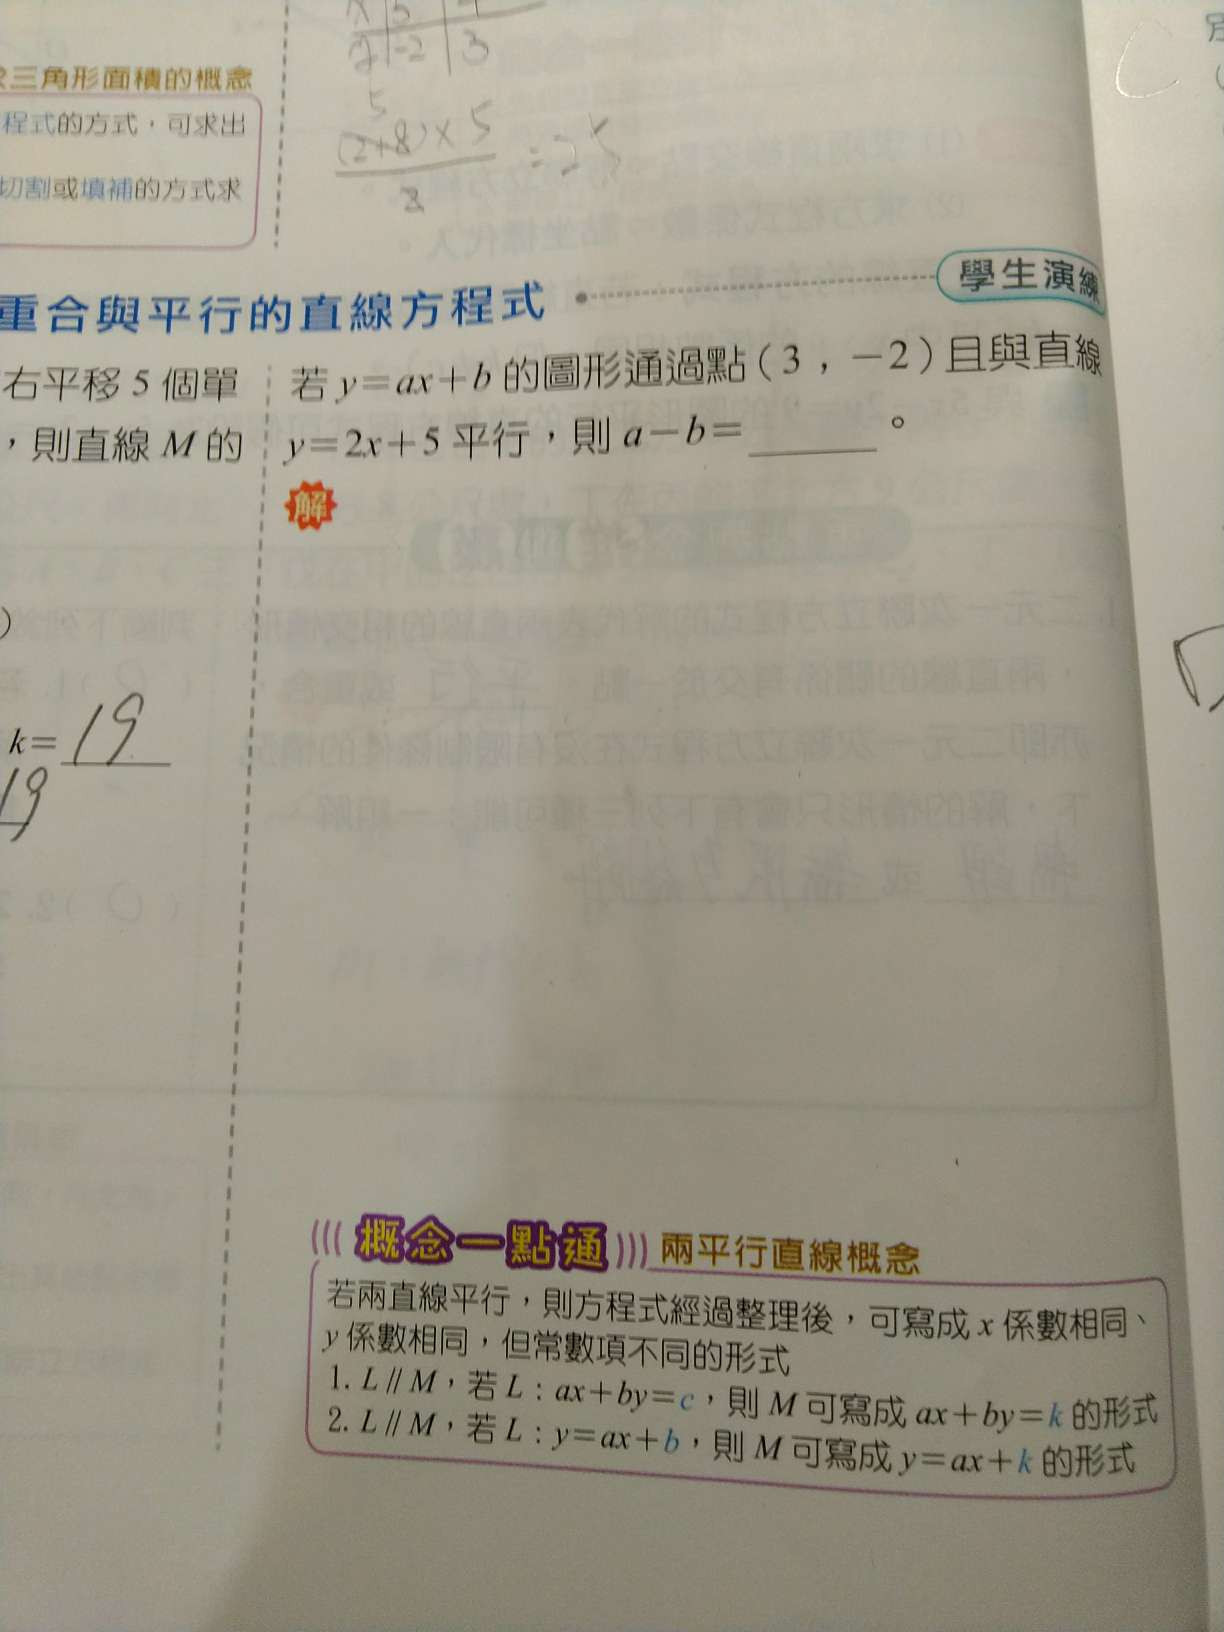 三角形面積的概念
程式的方式，可求出
切割或填補的方式求
2 | -2 | 3
5
(2+8)×5
=25
2
重合與平行的直線方程式
學生演練
右平移 5 個單
，則直線 M 的
k=19
19
若 y=ax+b 的圖形通過點(3，-2)且與直線
y=2x+5 平行，則 a-b=______。
解
概念一點通 兩平行直線概念
若兩直線平行，則方程式經過整理後，可寫成 x 係數相同、
y 係數相同，但常數項不同的形式
1. L∥M，若 L：ax+by=c，則 M 可寫成 ax+by=k 的形式
2. L∥M，若 L：y=ax+b，則 M 可寫成 y=ax+k 的形式